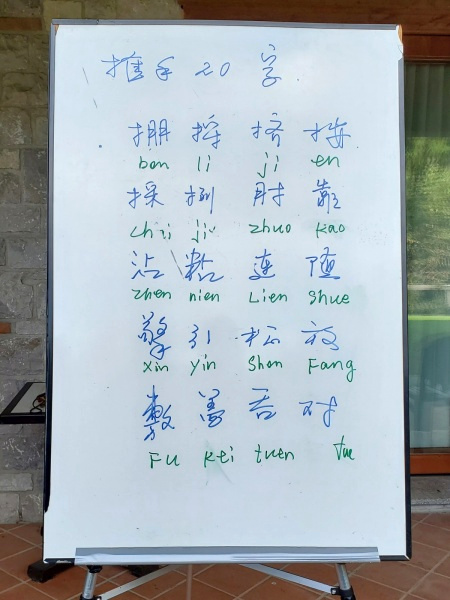 推手20字
掤捋挤按
ban li ji en
採挒肘靠
zhuo kao
沾粘连随
zhen nien Lien Shue
擎引松放
xin yin Shon Fang
敷盖吞对
FU Kei tuen tue